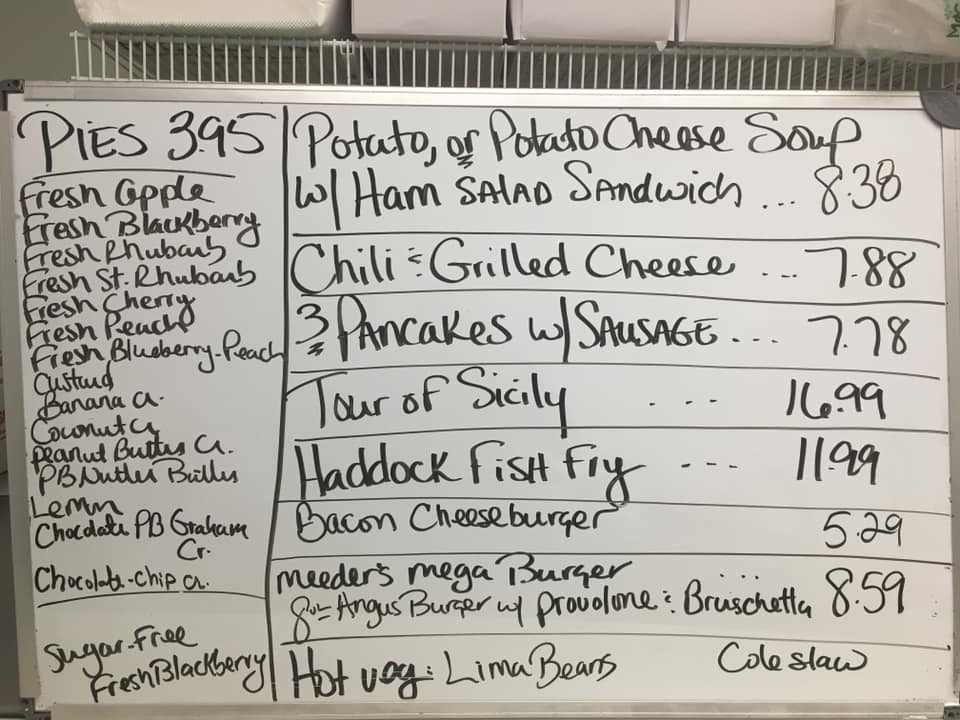 PIES 3.95
Fresh Apple
Fresh Blackberry
Fresh Rhubarb
Fresh St. Rhubarb
Fresh Cherry
Fresh Peach
Fresh Blueberry-Peach
Custard
Banana Cr.
Coconut Cr
Peanut Butter Cr.
PB Nutter Butter
Lemon
Chocolate PB Graham
Cr.
Chocolate-Chip Cr.
Sugar-Free
Fresh Blackberry
Potato, or Potato Cheese Soup
w/ Ham SALAD Sandwich ... 8.38
Chili & Grilled Cheese ... 7.88
3 PANCAKES w/ SAUSAGE ... 7.78
Tour of Sicily ... 16.99
HADDOCK FISH Fry ... 11.99
Bacon Cheeseburger 5.29
Meeder's Mega Burger ... 8.59
8oz Angus Burger w/ Provolone & Bruschetta
Hot veg: Lima Beans Cole slaw